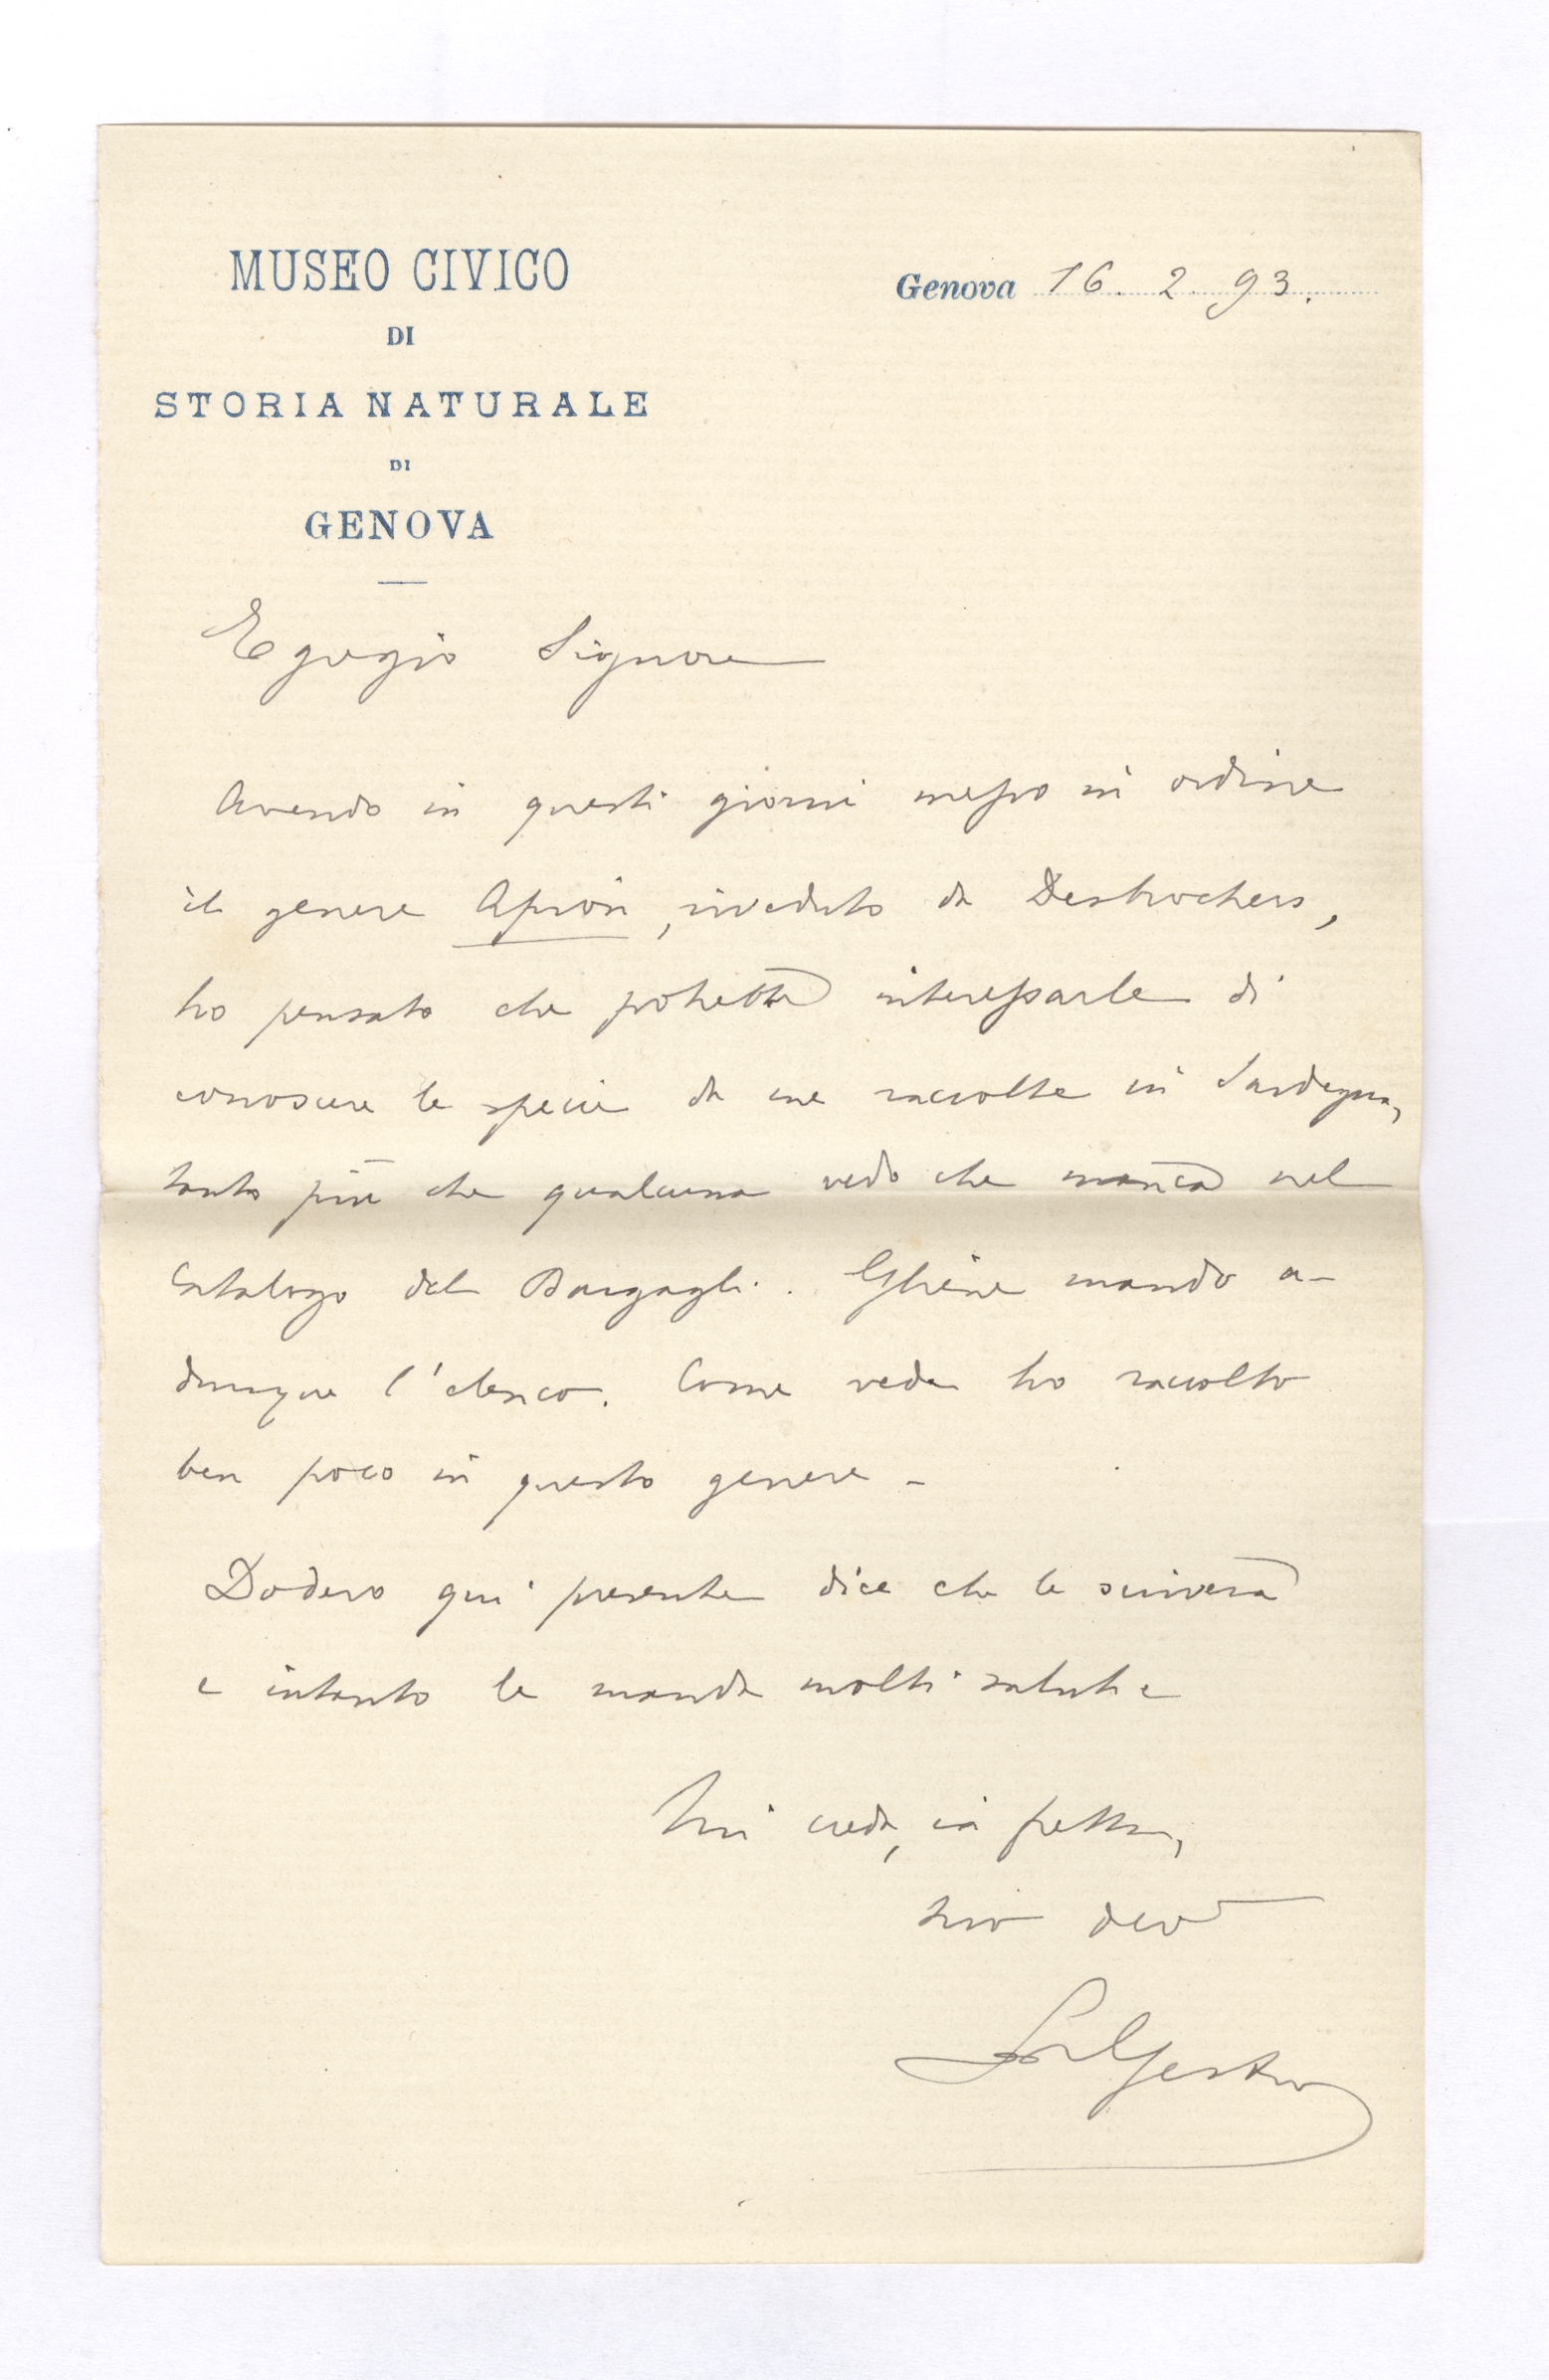 MUSEO CIVICO
DI
STORIA NATURALE
DI
GENOVA
Genova 16. 2. 93.
Egregio Signore
Avendo in questi giorni messo in ordine
il genere Apion, riveduto da Desbrochers,
ho pensato che potrebbe interessarle di
conoscere le specie da me raccolte in Sardegna,
tanto più che qualcuna vedo che manca nel
Catalogo del Bargagli. Gliene mando a-
dunque l'elenco. Come vede ho raccolto
ben poco in questo genere -
Dodero qui presente dice che le scriverà
e intanto le manda molti saluti e
Mi creda, in fretta,
suo devo
Gestro